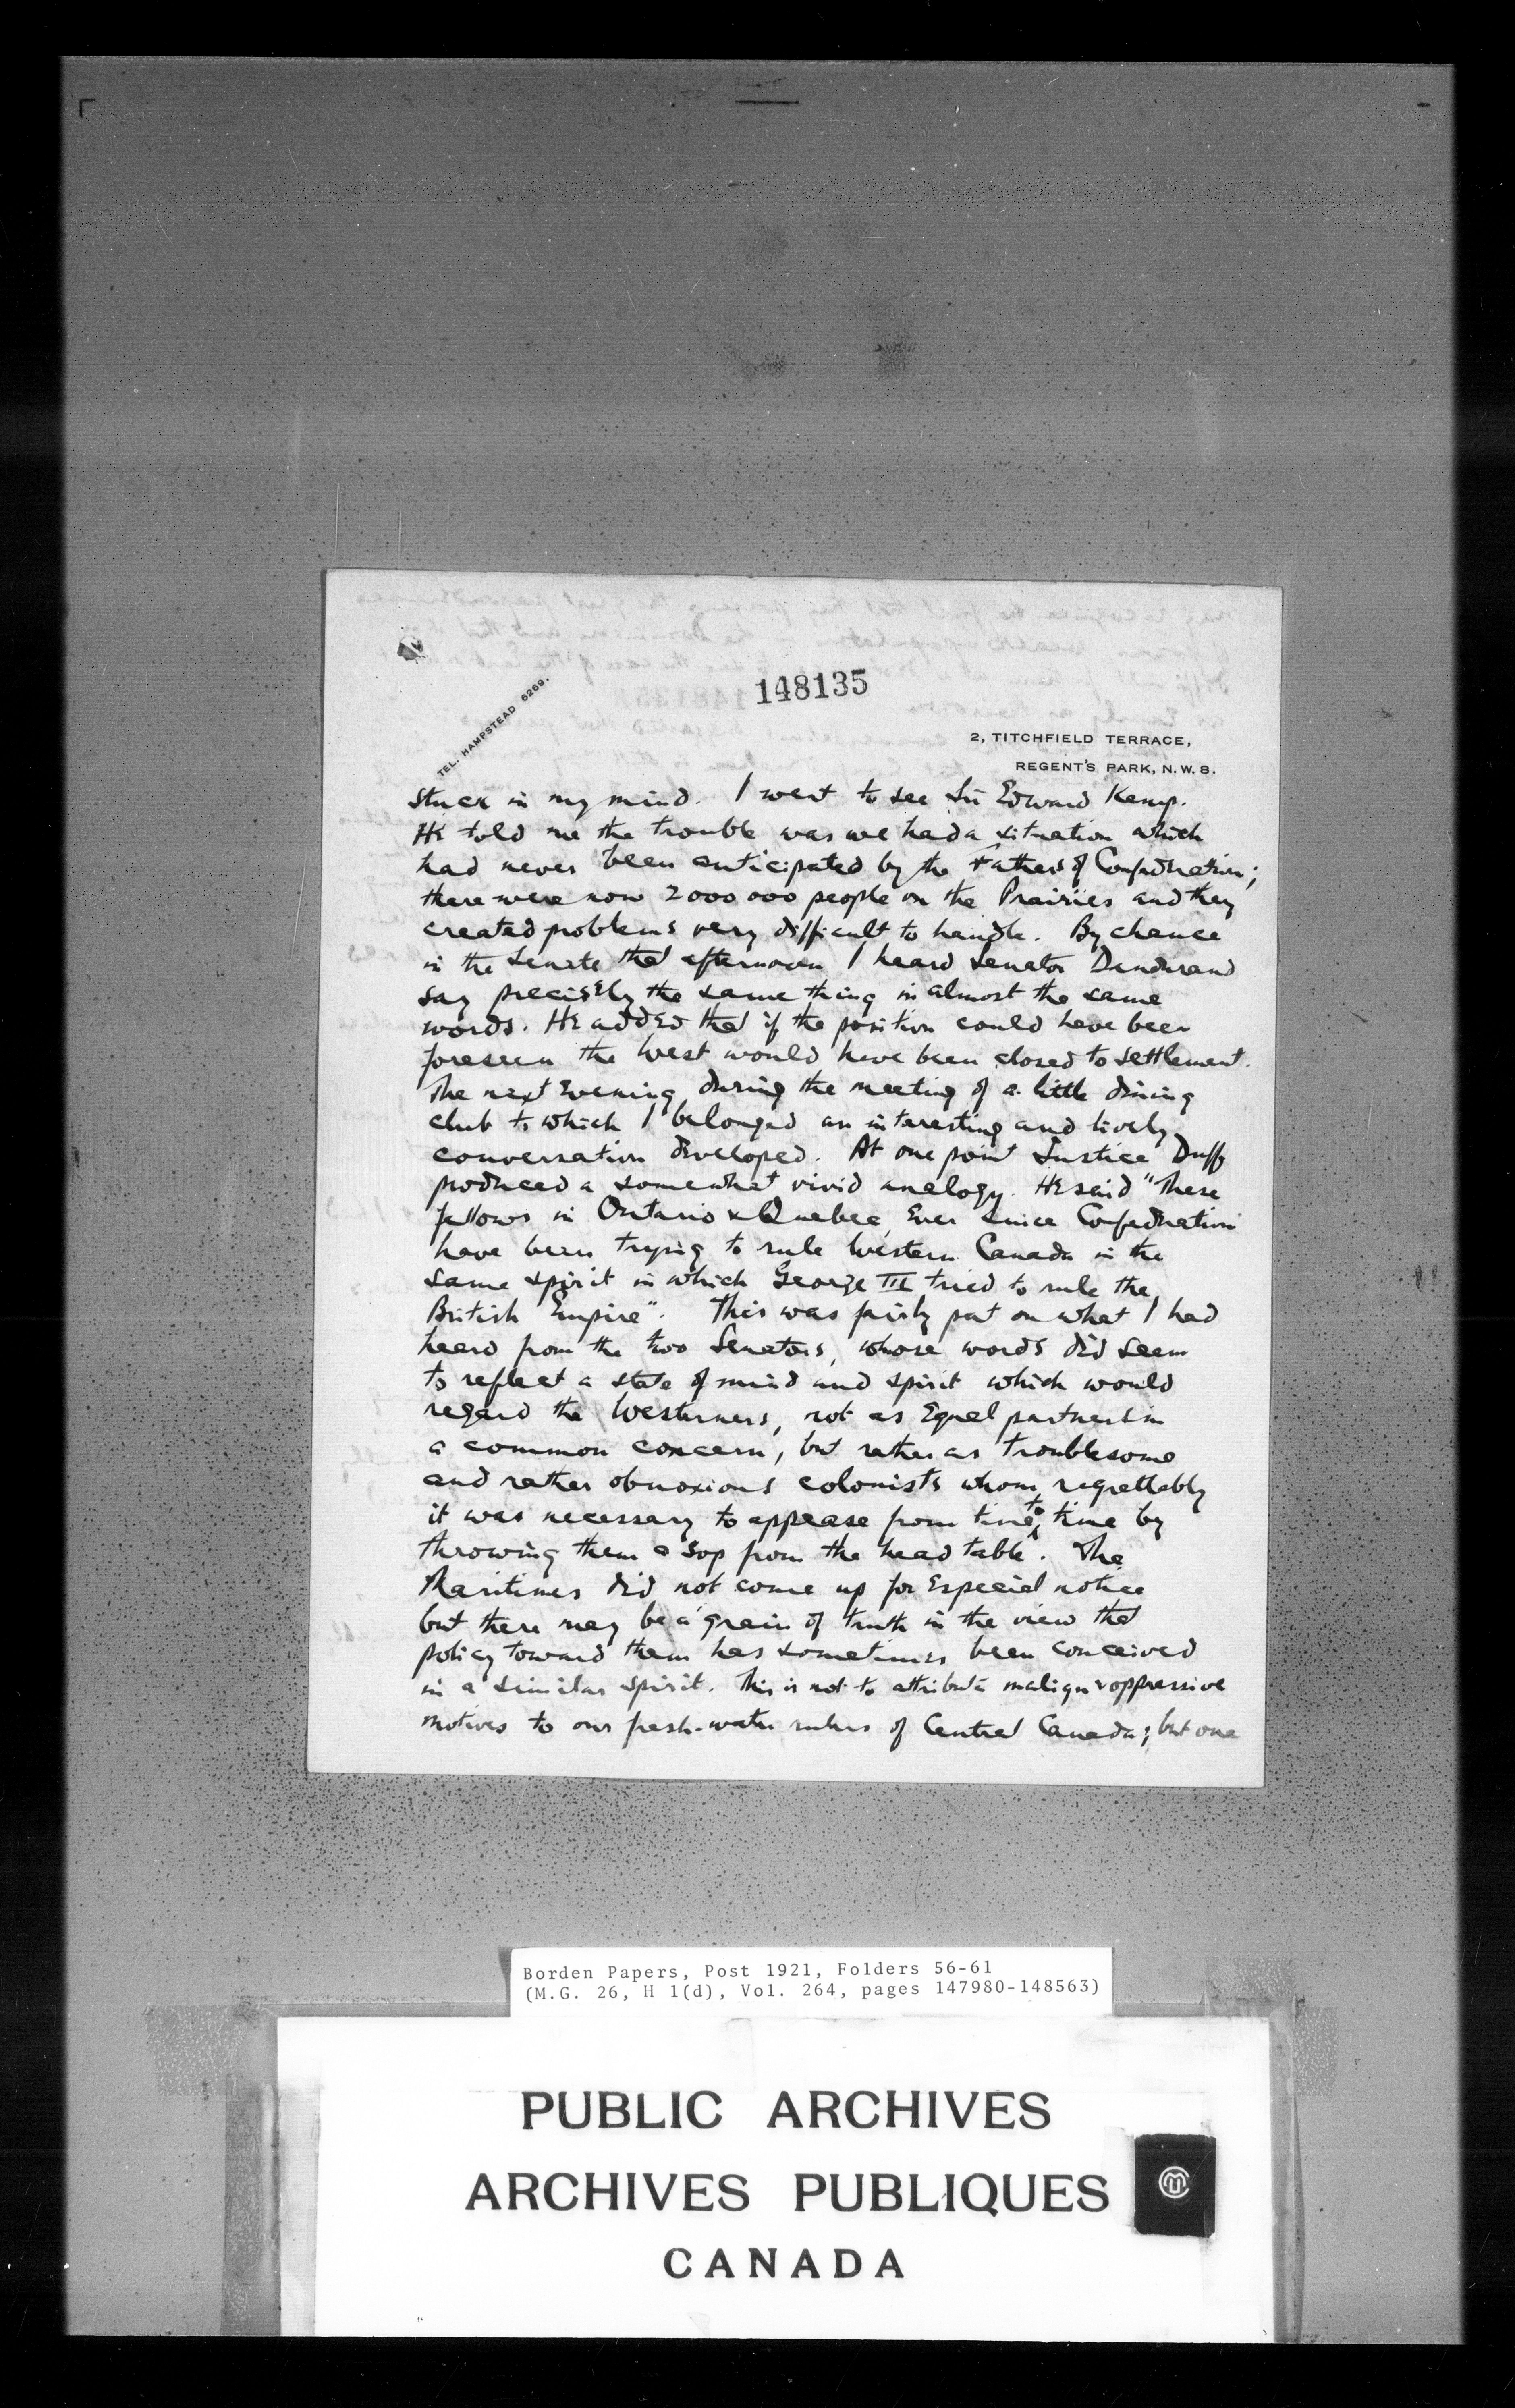 148135
TEL. HAMPSTEAD 6269.
2, TITCHFIELD TERRACE,
REGENT'S PARK, N.W. 8.
stuck in my mind. I went to see Sir Edward Kemp.
He told me the trouble was we had a situation which
had never been anticipated by the Fathers of Confederation;
there were now 2000000 people on the Prairies and they
created problems very difficult to handle. By chance
in the Senate that afternoon I heard Senator Dandurand
say precisely the same thing in almost the same
words. He added that if the position could have been
foreseen the West would have been closed to settlement.
The next evening, during the meeting of a little dining
club to which I belonged an interesting and lively
conversation developed. At one point Justice Duff
produced a somewhat vivid analogy. He said "These
fellows in Ontario & Quebec, ever since Confederation
have been trying to rule Western Canada in the
same spirit in which George III tried to rule the
British Empire". This was fairly pat on what I had
heard from the two Senators, whose words did seem
to reflect a state of mind and spirit which would
regard the Westerners, not as equal partners in
a common concern, but rather as troublesome
and rather obnoxious colonists whom, regrettably
it was necessary to appease from time to time by
throwing them a sop from the head table. The
Maritimes did not come up for especial notice
but there may be a grain of truth in the view that
policy toward them has sometimes been conceived
in a similar spirit. This is not to attribute malign & oppressive
motives to our fresh-water rulers of Central Canada; but one
Borden Papers, Post 1921, Folders 56-61
(M.G. 26, H 1(d), Vol. 264, pages 147980-148563)
PUBLIC ARCHIVES
ARCHIVES PUBLIQUES
CANADA